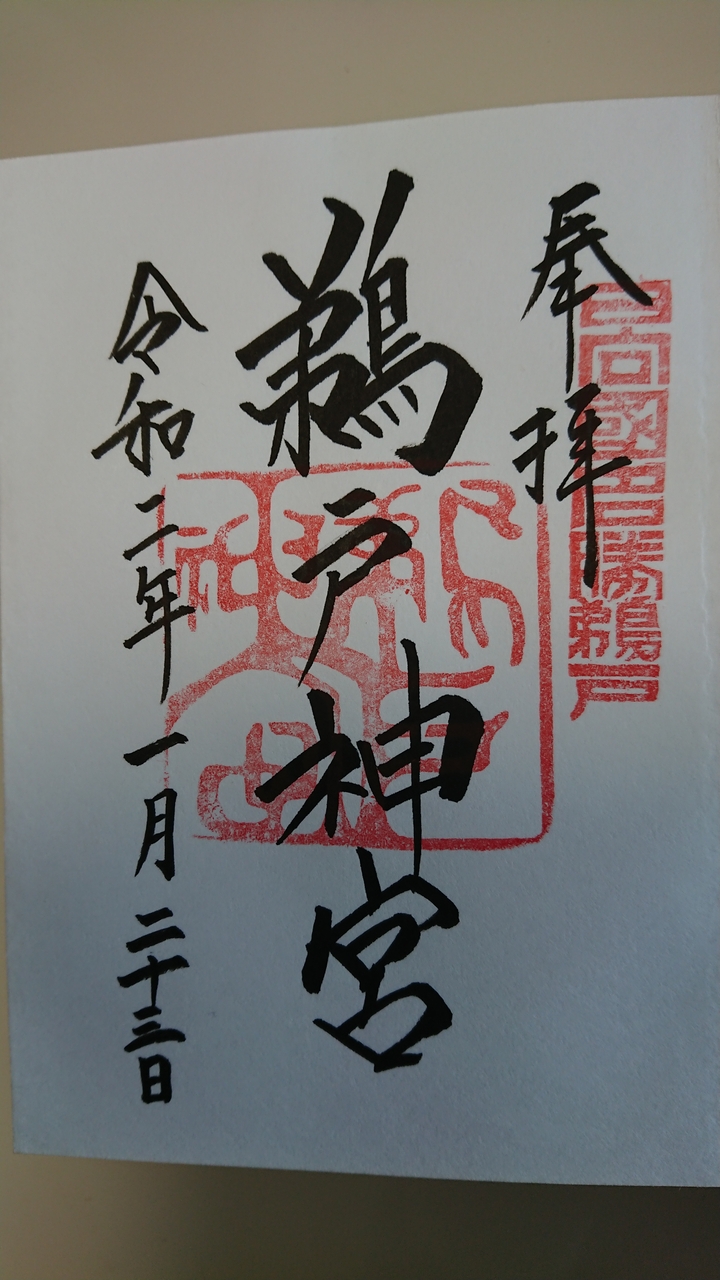 奉拝
日向國吾勝鵜戸
鵜戸神宮
令和二年一月二十三日